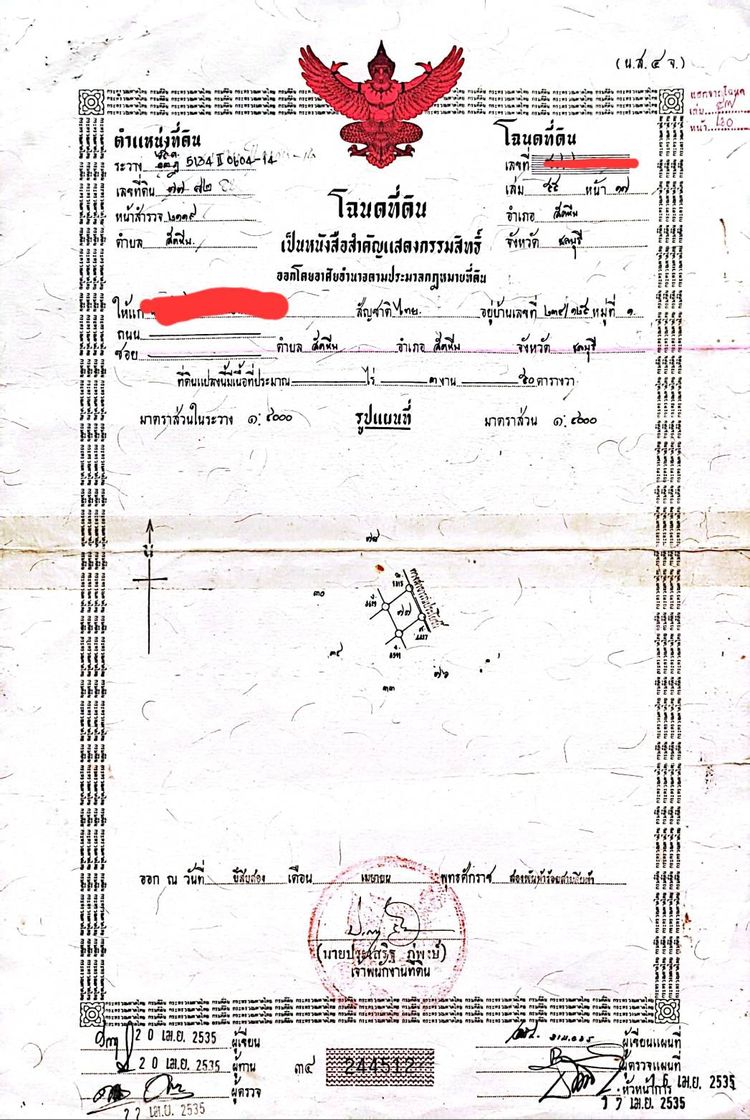 (น.ส.๔ จ.)
ตำแหน่งที่ดิน
โฉนดที่ดิน
ระวาง 5134 II 0604-14
เลขที่
เลขที่ดิน ๗๗
เล่ม หน้า ๑๗
หน้าสำรวจ ๒๑๑๙
อำเภอ สัตหีบ
ตำบล สัตหีบ
จังหวัด ชลบุรี
โฉนดที่ดิน
เป็นหนังสือสำคัญแสดงกรรมสิทธิ์
ออกโดยอาศัยอำนาจตามประมวลกฎหมายที่ดิน
ให้แก่ สัญชาติ ไทย อยู่บ้านเลขที่ หมู่ที่ ๑
ถนน
ซอย ตำบล สัตหีบ อำเภอ สัตหีบ จังหวัด ชลบุรี
ที่ดินแปลงนี้มีเนื้อที่ประมาณ ไร่ ๓ งาน ๕๐ ตารางวา
มาตราส่วนในระวาง ๑:๔๐๐๐ รูปแผนที่ มาตราส่วน ๑:๔๐๐๐
น
๗๘
๓๐
๗๗
๓๔
๗๖
๓๓
ออก ณ วันที่ ยี่สิบสอง เดือน เมษายน พุทธศักราช สองพันห้าร้อยสามสิบห้า
(นายประเสริฐ ภู่พงษ์)
เจ้าพนักงานที่ดิน
20 เม.ย. 2535 ผู้เขียน
ผู้เขียนแผนที่
20 เม.ย. 2535 ผู้ทาน
๓๔ 244512
ผู้ตรวจแผนที่
ผู้ตรวจ
หัวหน้าการ 16 เม.ย. 2535
22 เม.ย. 2535
17 เม.ย. 2535